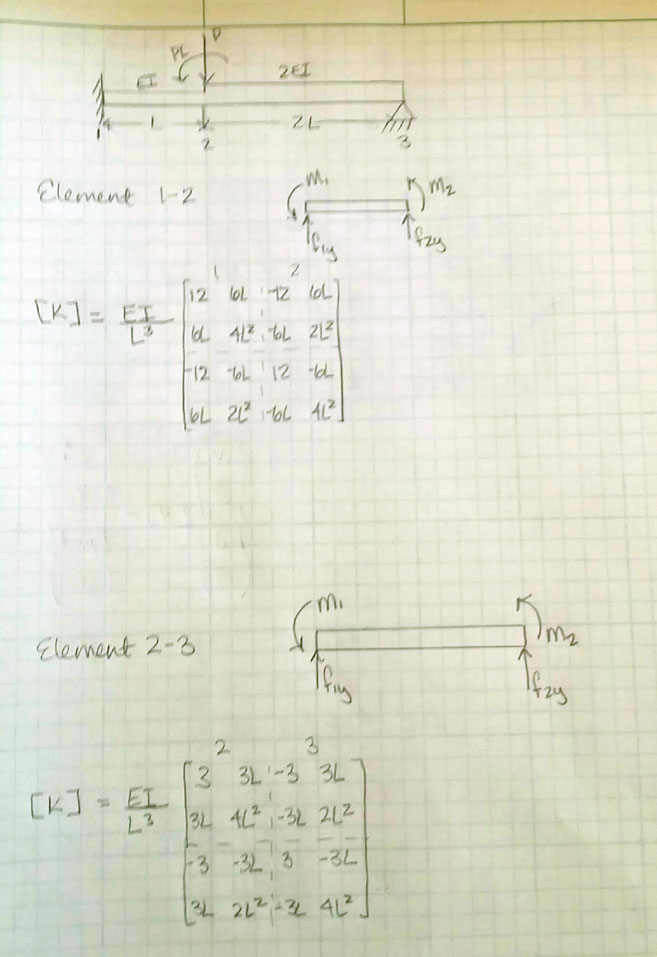 P
PL
EI 2EI
1 L 2 2L 3
Element 1-2
m₁ m₂
f₁y f₂y
1 2
[K] = EI/L³
12 6L -12 6L
6L 4L² -6L 2L²
-12 -6L 12 -6L
6L 2L² -6L 4L²
m₁
Element 2-3 m₂
f₁y f₂y
2 3
[K] = EI/L³
3 3L -3 3L
3L 4L² -3L 2L²
-3 -3L 3 -3L
3L 2L² -3L 4L²